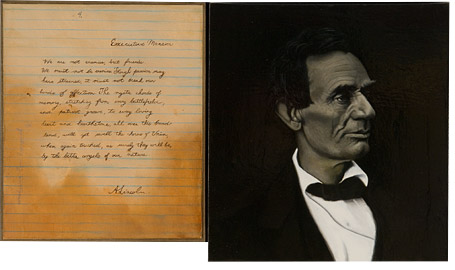 Executive Mansion
We are not enemies, but friends
We must not be enemies Though passion may
have strained it must not break our
bonds of affection The mystic chords of
memory, stretching from every battlefield,
and patriot grave, to every living
heart and hearthstone all over this broad
land, will yet swell the chorus of Union,
when again touched, as surely they will be,
by the better angels of our nature
A. Lincoln